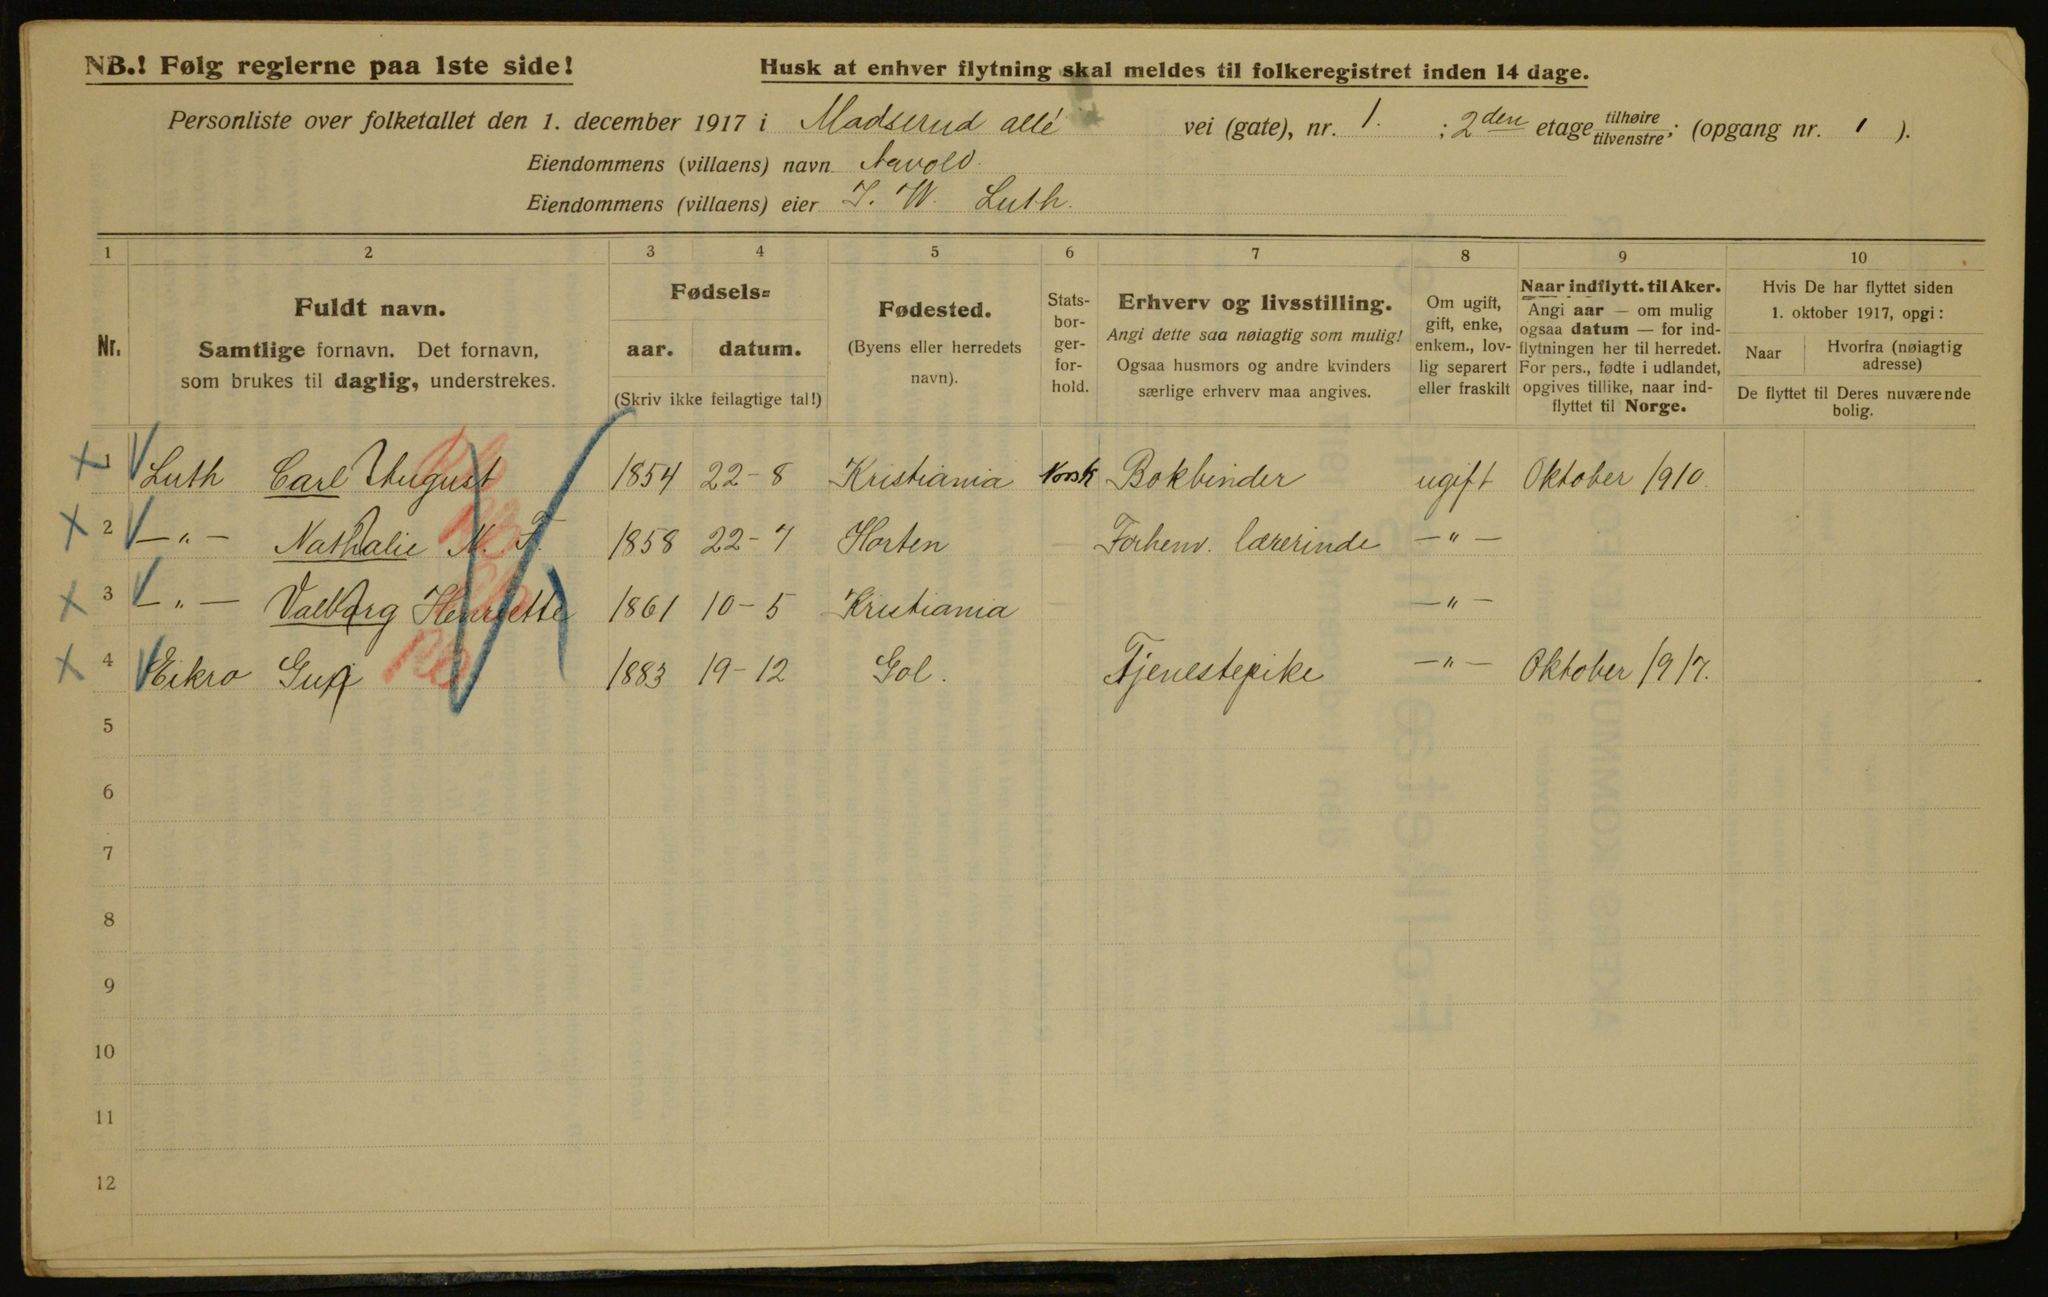 NB.! Følg reglerne paa 1ste side!
Husk at enhver flytning skal meldes til folkeregistret inden 14 dage.
Personliste over folketallet den 1. december 1917 i Madserud allé vei (gate), nr. 1. ; 2den etage tilhøire tilvenstre; (opgang nr. 1 ).
Eiendommens (villaens) navn Aavold.
Eiendommens (villaens) eier J. W. Luth.
1 2 3 4 5 6 7 8 9 10
Nr.
Fuldt navn.
Samtlige fornavn. Det fornavn,
som brukes til daglig, understrekes.
Fødsels-
aar. datum.
(Skriv ikke feilagtige tal!)
Fødested.
(Byens eller herredets
navn).
Stats-
bor-
ger-
for-
hold.
Erhverv og livsstilling.
Angi dette saa nøiagtig som mulig!
Ogsaa husmors og andre kvinders
særlige erhverv maa angives.
Om ugift,
gift, enke,
enkem., lov-
lig separert
eller fraskilt
Naar indflytt. til Aker.
Angi aar — om mulig
ogsaa datum — for ind-
flytningen her til herredet.
For pers., fødte i udlandet,
opgives tillike, naar ind-
flyttet til Norge.
Hvis De har flyttet siden
1. oktober 1917, opgi:
Naar
Hvorfra (nøiagtig
adresse)
De flyttet til Deres nuværende
bolig.
1 Luth Carl August 1854 22-8 Kristiania Norsk Bokbinder ugift Oktober 1910.
2 —"— Nathalie N. F. 1858 22-7 Horten — Forhenv. lærerinde —"—
3 —"— Valborg Henriette 1861 10-5 Kristiania — —"—
4 Eikro Guri 1883 19-12 Gol. Tjenestepike —"— Oktober 1917.
5
6
7
8
9
10
11
12